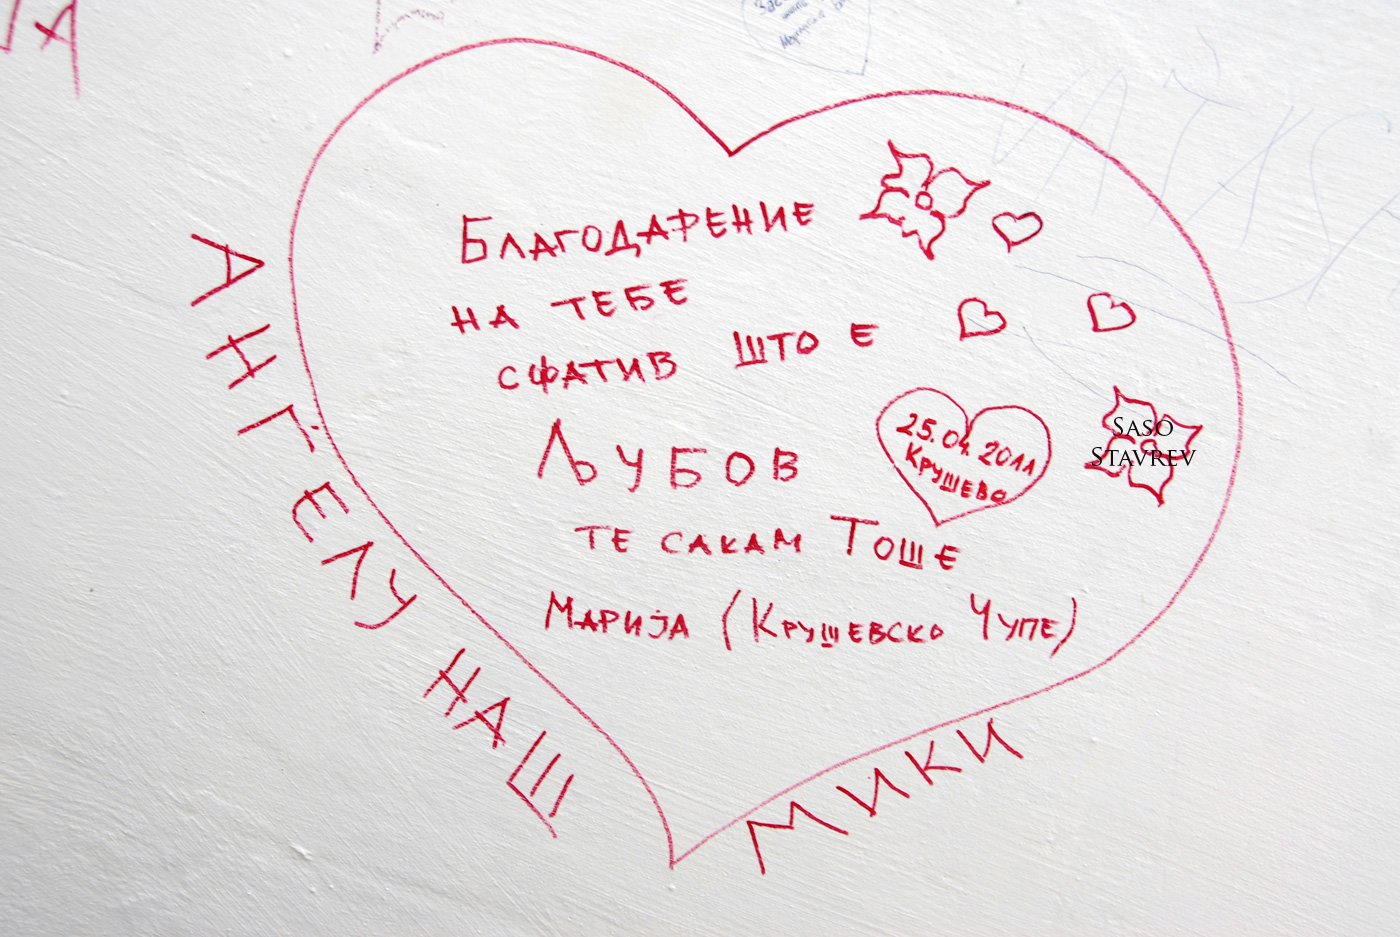 Благодарение
на тебе
сфатив што е
Љубов
25.04.2011
Крушево
те сакам Тоше
Марија (Крушевско Чупе)
АНГЕЛУ НАШ
МИКИ
SASO
STAVREV